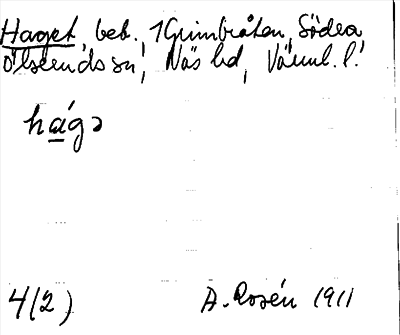 Haget, beb., 1 Grimbråten, Södra
Ölseruds sn, Näs hd, Värml. l.
hágə
4(2)
A. Rosén 1911